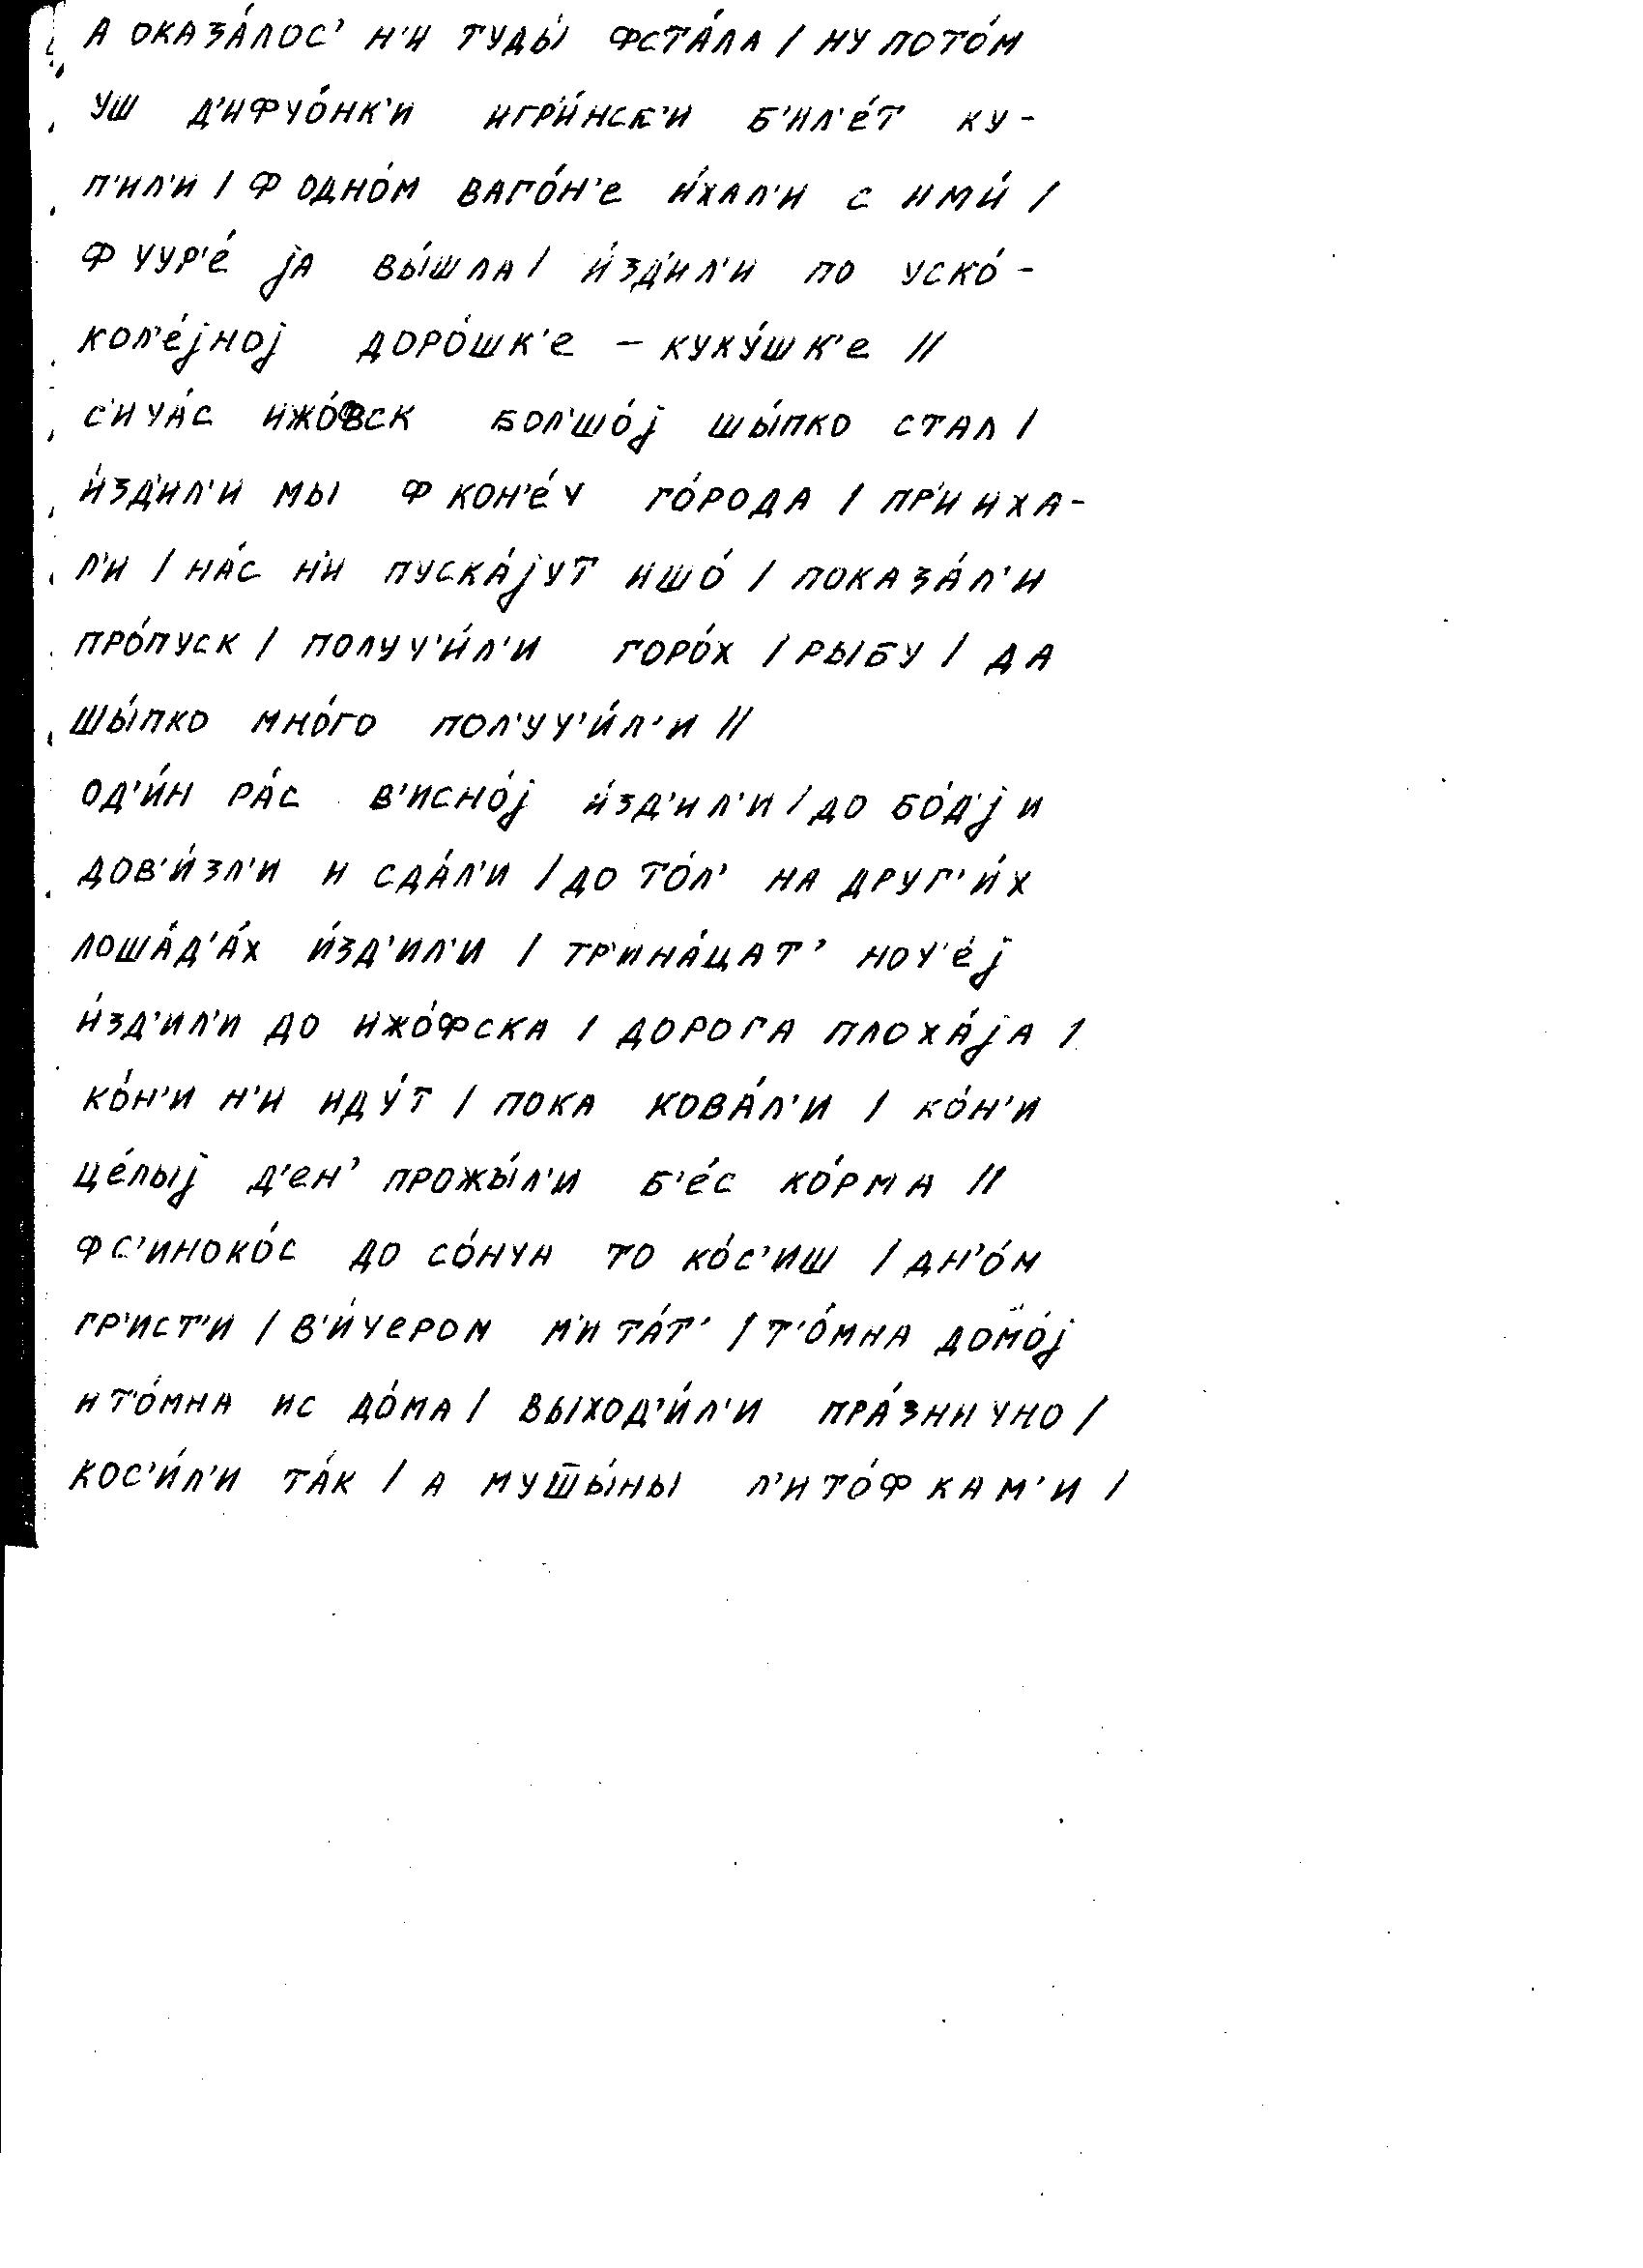 А ОКАЗА́ЛОС' Н'И ТУДЫ́ ФСТА́ЛА / НУ ПОТО́М
УШ Д'ИФЧО́НК'И ИГР'И́НСК'И Б'ИЛ'Е́Т КУ-
П'ИЛ'И / Ф ОДНО́М ВАГО́Н'Е И́ХАЛ'И С ИМИ́ /
Ф УУР'Е́ jА ВЫ́ШЛА / И́ЗД'ИЛ'И ПО УСКО́-
КОЛ'Е́jНОj ДОРО́ШК'Е – КУКУ́ШК'Е //
С'ИЧА́С ИЖО́ВСК БОЛ'ШО́j ШЫ́ПКО СТАЛ /
И́ЗД'ИЛ'И МЫ Ф КОН'Е́Ч ГО́РОДА / ПР'ИИХА-
Л'И / НА́С Н'И ПУСКА́jУТ ИШО́ / ПОКАЗА́Л'И
ПРО́ПУСК / ПОЛУЧ'И́Л'И ГОРО́Х / РЫБУ / ДА
ШЫ́ПКО МНО́ГО ПОЛ'УЧ'И́Л'И //
ОД'И́Н РА́С В'ИСНО́j И́ЗД'ИЛ'И / ДО БО́Д'jИ
ДОВ'И́ЗЛ'И И СДА́Л'И / ДО ТО́Л' НА ДРУГ'И́Х
ЛОША́Д'А́Х И́ЗД'ИЛ'И / ТР'ИНА́ЦАТ' НОЧ'Е́j
И́ЗД'ИЛ'И ДО ИЖО́ФСКА / ДОРОГА ПЛОХА́jА /
КО́Н'И Н'И ИДУ́Т / ПОКА КОВА́Л'И / КО́Н'И
ЦЕ́ЛЫj Д'ЕН' ПРОЖЫ́Л'И Б'Е́С КО́РМА //
ФС'ИНОКО́С ДО СО́НЧА ТО КО́С'ИШ / ДН'О́М
ГР'ИСТ'И / В'И́ЧЕРОМ М'ИТА́Т' / Т'О́МНА ДОМО́j
И Т'О́МНА ИС ДО́МА / ВЫХОД'И́Л'И ПРА́ЗНИЧНО /
КОС'И́Л'И ТА́К / А МУШ̅Ы́НЫ Л'ИТО́ФКАМ'И /